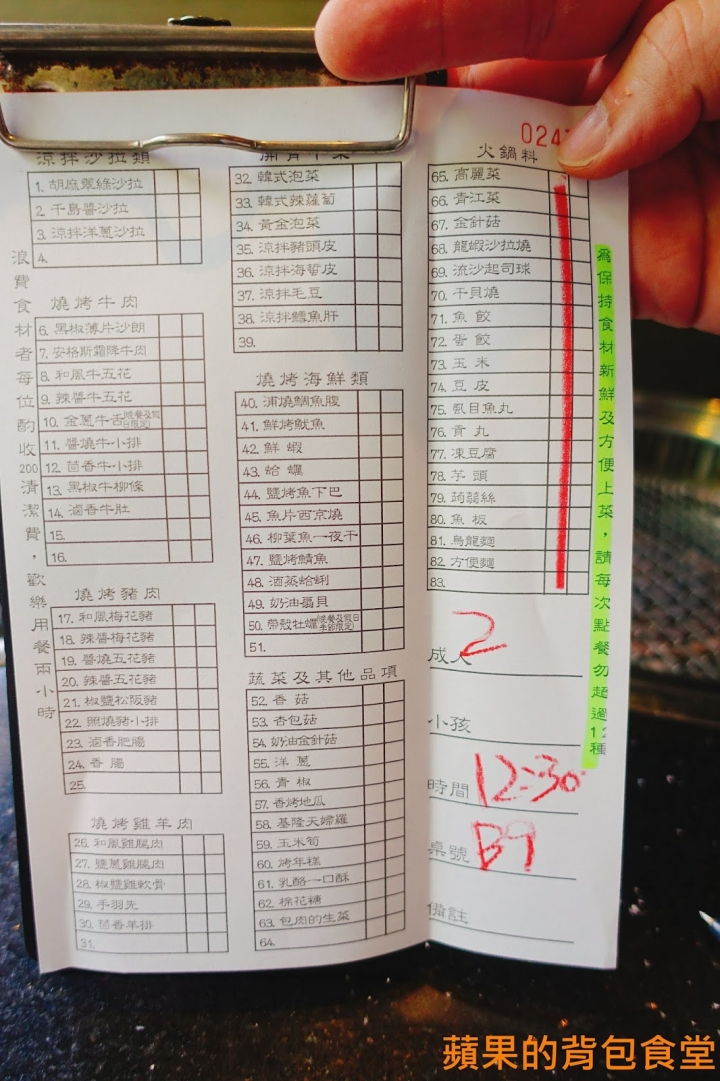 024
涼拌沙拉類
1. 胡麻翠綠沙拉
2. 千島醬沙拉
3. 涼拌洋蔥沙拉
4.
燒烤牛肉
6. 黑椒薄片沙朗
7. 安格斯霜降牛肉
8. 和風牛五花
9. 辣醬牛五花
10. 金蔥牛舌(限餐及假日限定)
11. 醬燒牛小排
12. 茴香牛小排
13. 黑椒牛柳條
14. 滷香牛肚
15.
16.
燒烤豬肉
17. 和風梅花豬
18. 辣醬梅花豬
19. 醬燒五花豬
20. 辣醬五花豬
21. 椒鹽松阪豬
22. 照燒豬小排
23. 滷香肥腸
24. 香腸
25.
燒烤雞羊肉
26. 和風雞腿肉
27. 鹽蔥雞腿肉
28. 椒鹽雞軟骨
29. 手羽先
30. 茴香羊排
31.
浪費食材者每位酌收200清潔費，歡樂用餐兩小時
開胃小菜
32. 韓式泡菜
33. 韓式辣蘿蔔
34. 黃金泡菜
35. 涼拌豬頭皮
36. 涼拌海蜇皮
37. 涼拌毛豆
38. 涼拌鱈魚肝
39.
燒烤海鮮類
40. 浦燒鯛魚腹
41. 鮮烤魷魚
42. 鮮蝦
43. 蛤蠣
44. 鹽烤魚下巴
45. 魚片西京燒
46. 柳葉魚一夜干
47. 鹽烤鯖魚
48. 酒蒸蛤蜊
49. 奶油扇貝
50. 帶殼牡蠣(晚餐及假日季節限定)
51.
蔬菜及其他品項
52. 香菇
53. 杏包菇
54. 奶油金針菇
55. 洋蔥
56. 青椒
57. 香烤地瓜
58. 基隆天婦羅
59. 玉米筍
60. 烤年糕
61. 乳酪一口酥
62. 棉花糖
63. 包肉的生菜
64.
火鍋料
65. 高麗菜
66. 青江菜
67. 金針菇
68. 龍蝦沙拉燒
69. 流沙起司球
70. 干貝燒
71. 魚餃
72. 蛋餃
73. 玉米
74. 豆皮
75. 虱目魚丸
76. 貢丸
77. 凍豆腐
78. 芋頭
79. 蒟蒻絲
80. 魚板
81. 烏龍麵
82. 方便麵
83.
成人 2
小孩
時間 12:30
桌號 B7
備註
為保持食材新鮮及方便上菜，請每次點餐勿超過12種
蘋果的背包食堂